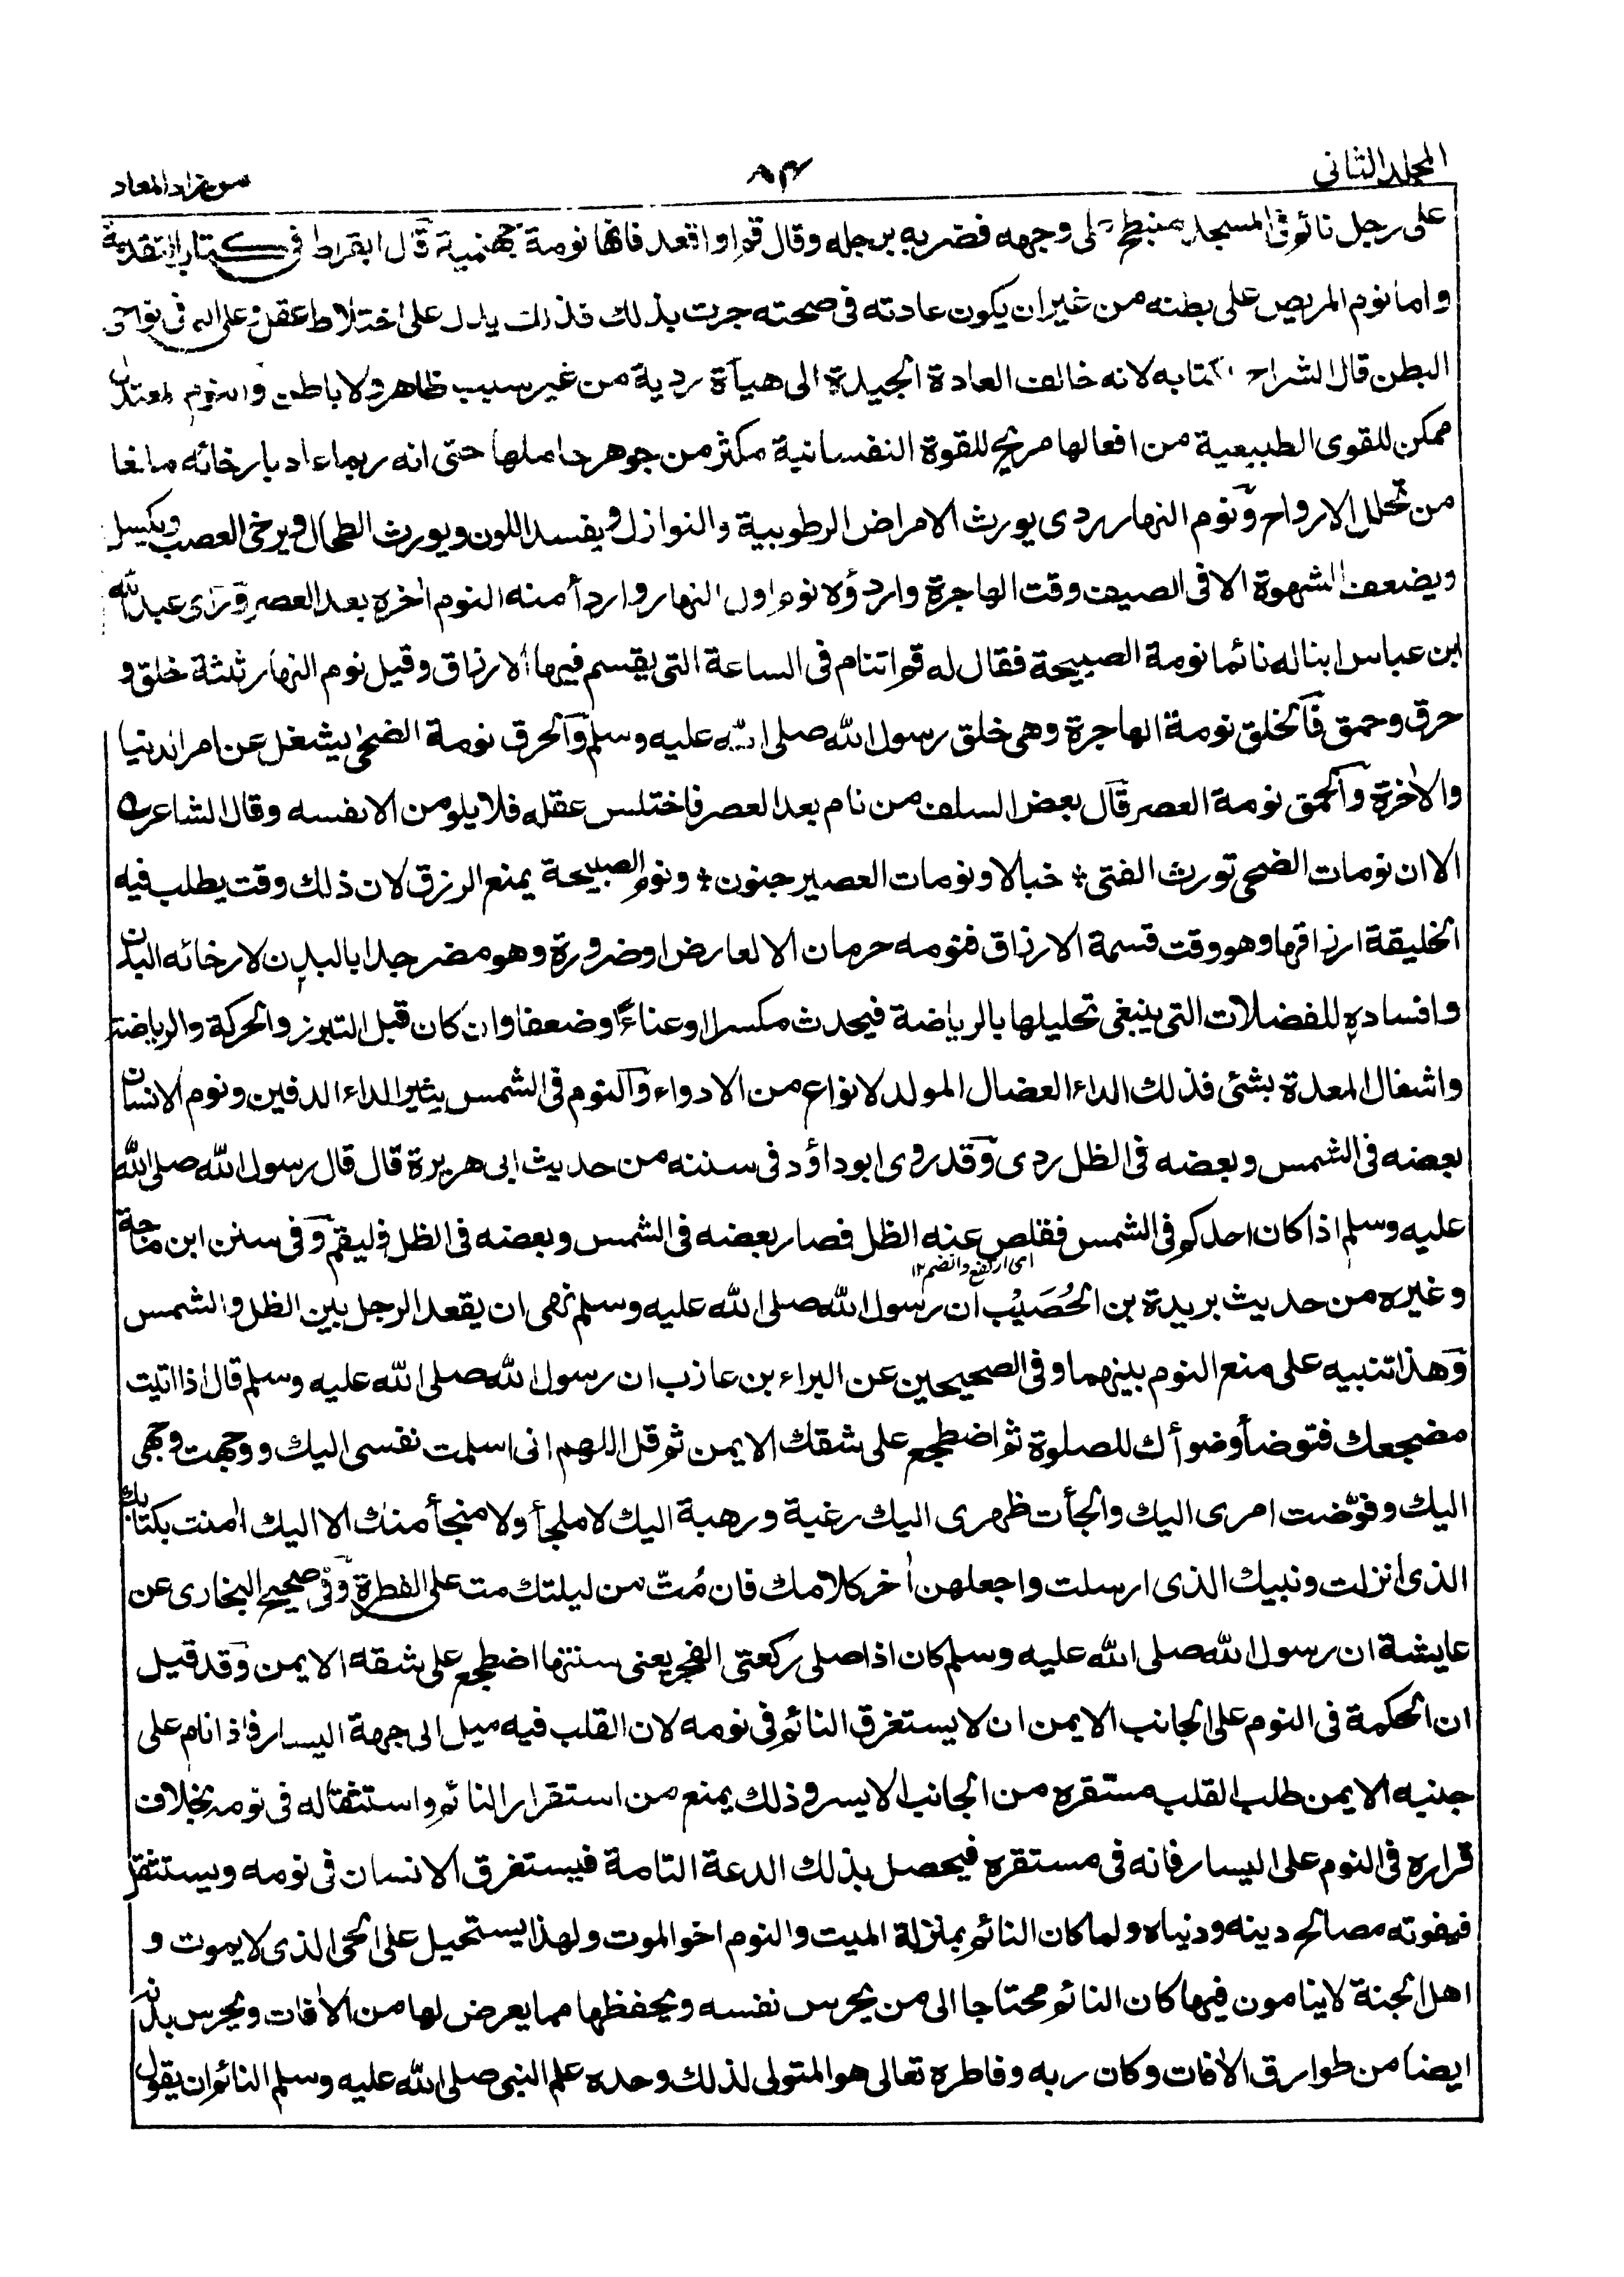 المجلد الثانی
٨٤
من زاد المعاد
علی رجل نائم فی المسجد منبطح علی وجهه فضربه برجله وقال قم او اقعد فانها نومة جهنمية قال ابقراط فی كتاب التقدمة
واما نوم المريض علی بطنه من غير ان يكون عادته فی صحته جرت بذلك فذلك يدل علی اختلاط عقل وعلی الم فی نواحی
البطن قال الشراح لكتابه لانه خالف العادة الجيدة الی هيأة ردية من غير سبب ظاهر ولا باطن والنوم المعتدل
ممكن للقوی الطبيعية من افعالها مريح للقوة النفسانية مكثر من جوهر حاملها حتی انه ربما عاد بارخائه مانعا
من تحلل الارواح ونوم النهار ردی يورث الامراض الرطوبية والنوازل ويفسد اللون ويورث الطحال ويرخی العصب ويكسل
ويضعف الشهوة الا فی الصيف وقت الهاجرة واردؤه نوم اول النهار واردأ منه النوم اخره بعد العصر ورای عبد الله
ابن عباس ابنا له نائما نومة الصبيحة فقال له قم اتنام فی الساعة التی يقسم فيها الارزاق وقيل نوم النهار ثلثة خلق و
حرق وحمق فالخلق نومة الهاجرة وهی خلق رسول الله صلی الله عليه وسلم والحرق نومة الضحی يشغل عن امر الدنيا
والاخرة والحمق نومة العصر قال بعض السلف من نام بعد العصر فاختلس عقله فلا يلومن الا نفسه وقال الشاعر
الا ان نومات الضحی تورث الفتی * خبالا ونومات العصير جنون * ونوم الصبيحة يمنع الرزق لان ذلك وقت يطلب فيه
الخليقة ارزاقها وهو وقت قسمة الارزاق فنومه حرمان الا لعارض او ضرورة وهو مضر جدا بالبدن لارخائه البدن
وافساده للفضلات التی ينبغی تحليلها بالرياضة فيحدث مكسرا وعناءً وضعفا وان كان قبل التبرز والحركة والرياضة
واشغال المعدة بشئی فذلك الداء العضال المولد لانواع من الادواء والنوم فی الشمس يثير الداء الدفين ونوم الانسان
بعضه فی الشمس وبعضه فی الظل ردی وقد روی ابو داؤد فی سننه من حديث ابی هريرة قال قال رسول الله صلی الله
عليه وسلم اذا كان احدكم فی الشمس فقلص عنه الظل فصار بعضه فی الشمس وبعضه فی الظل فليقم وفی سنن ابن ماجة
ای ارتفع وانضم ١٢
وغيره من حديث بريدة بن الحُصَيْب ان رسول الله صلی الله عليه وسلم نهی ان يقعد الرجل بين الظل والشمس
وهذا تنبيه علی منع النوم بينهما وفی الصحيحين عن البراء بن عازب ان رسول الله صلی الله عليه وسلم قال اذا اتيت
مضجعك فتوضأ وضوأك للصلوة ثم اضطجع علی شقك الايمن ثم قل اللهم انی اسلمت نفسی اليك ووجهت وجهی
اليك وفوّضت امری اليك والجأت ظهری اليك رغبة ورهبة اليك لا ملجأ ولا منجأ منك الا اليك امنت بكتابك
الذی انزلت ونبيك الذی ارسلت واجعلهن اخر كلامك فان مُتّ من ليلتك مت علی الفطرة وفی صحيح البخاری عن
عايشة ان رسول الله صلی الله عليه وسلم كان اذا صلی ركعتی الفجر يعنی سنتها اضطجع علی شقه الايمن وقد قيل
ان الحكمة فی النوم علی الجانب الايمن ان لا يستغرق النائم فی نومه لان القلب فيه ميل الی جهة اليسار فاذا نام علی
جنبه الايمن طلب القلب مستقره من الجانب الايسر وذلك يمنع من استقرار النائم واستثقاله فی نومه بخلاف
قراره فی النوم علی اليسار فانه فی مستقره فيحصل بذلك الدعة التامة فيستغرق الانسان فی نومه ويستثقل
فيفوته مصالح دينه ودنياه ولما كان النائم بمنزلة الميت والنوم اخو الموت ولهذا يستحيل علی الحی الذی لا يموت و
اهل الجنة لا ينامون فيها كان النائم محتاجا الی من يحرس نفسه ويحفظها مما يعرض لها من الافات ويحرس بدنه
ايضا من طوارق الافات وكان ربه وفاطره تعالی هو المتولی لذلك وحده علم النبی صلی الله عليه وسلم النائم ان يقول